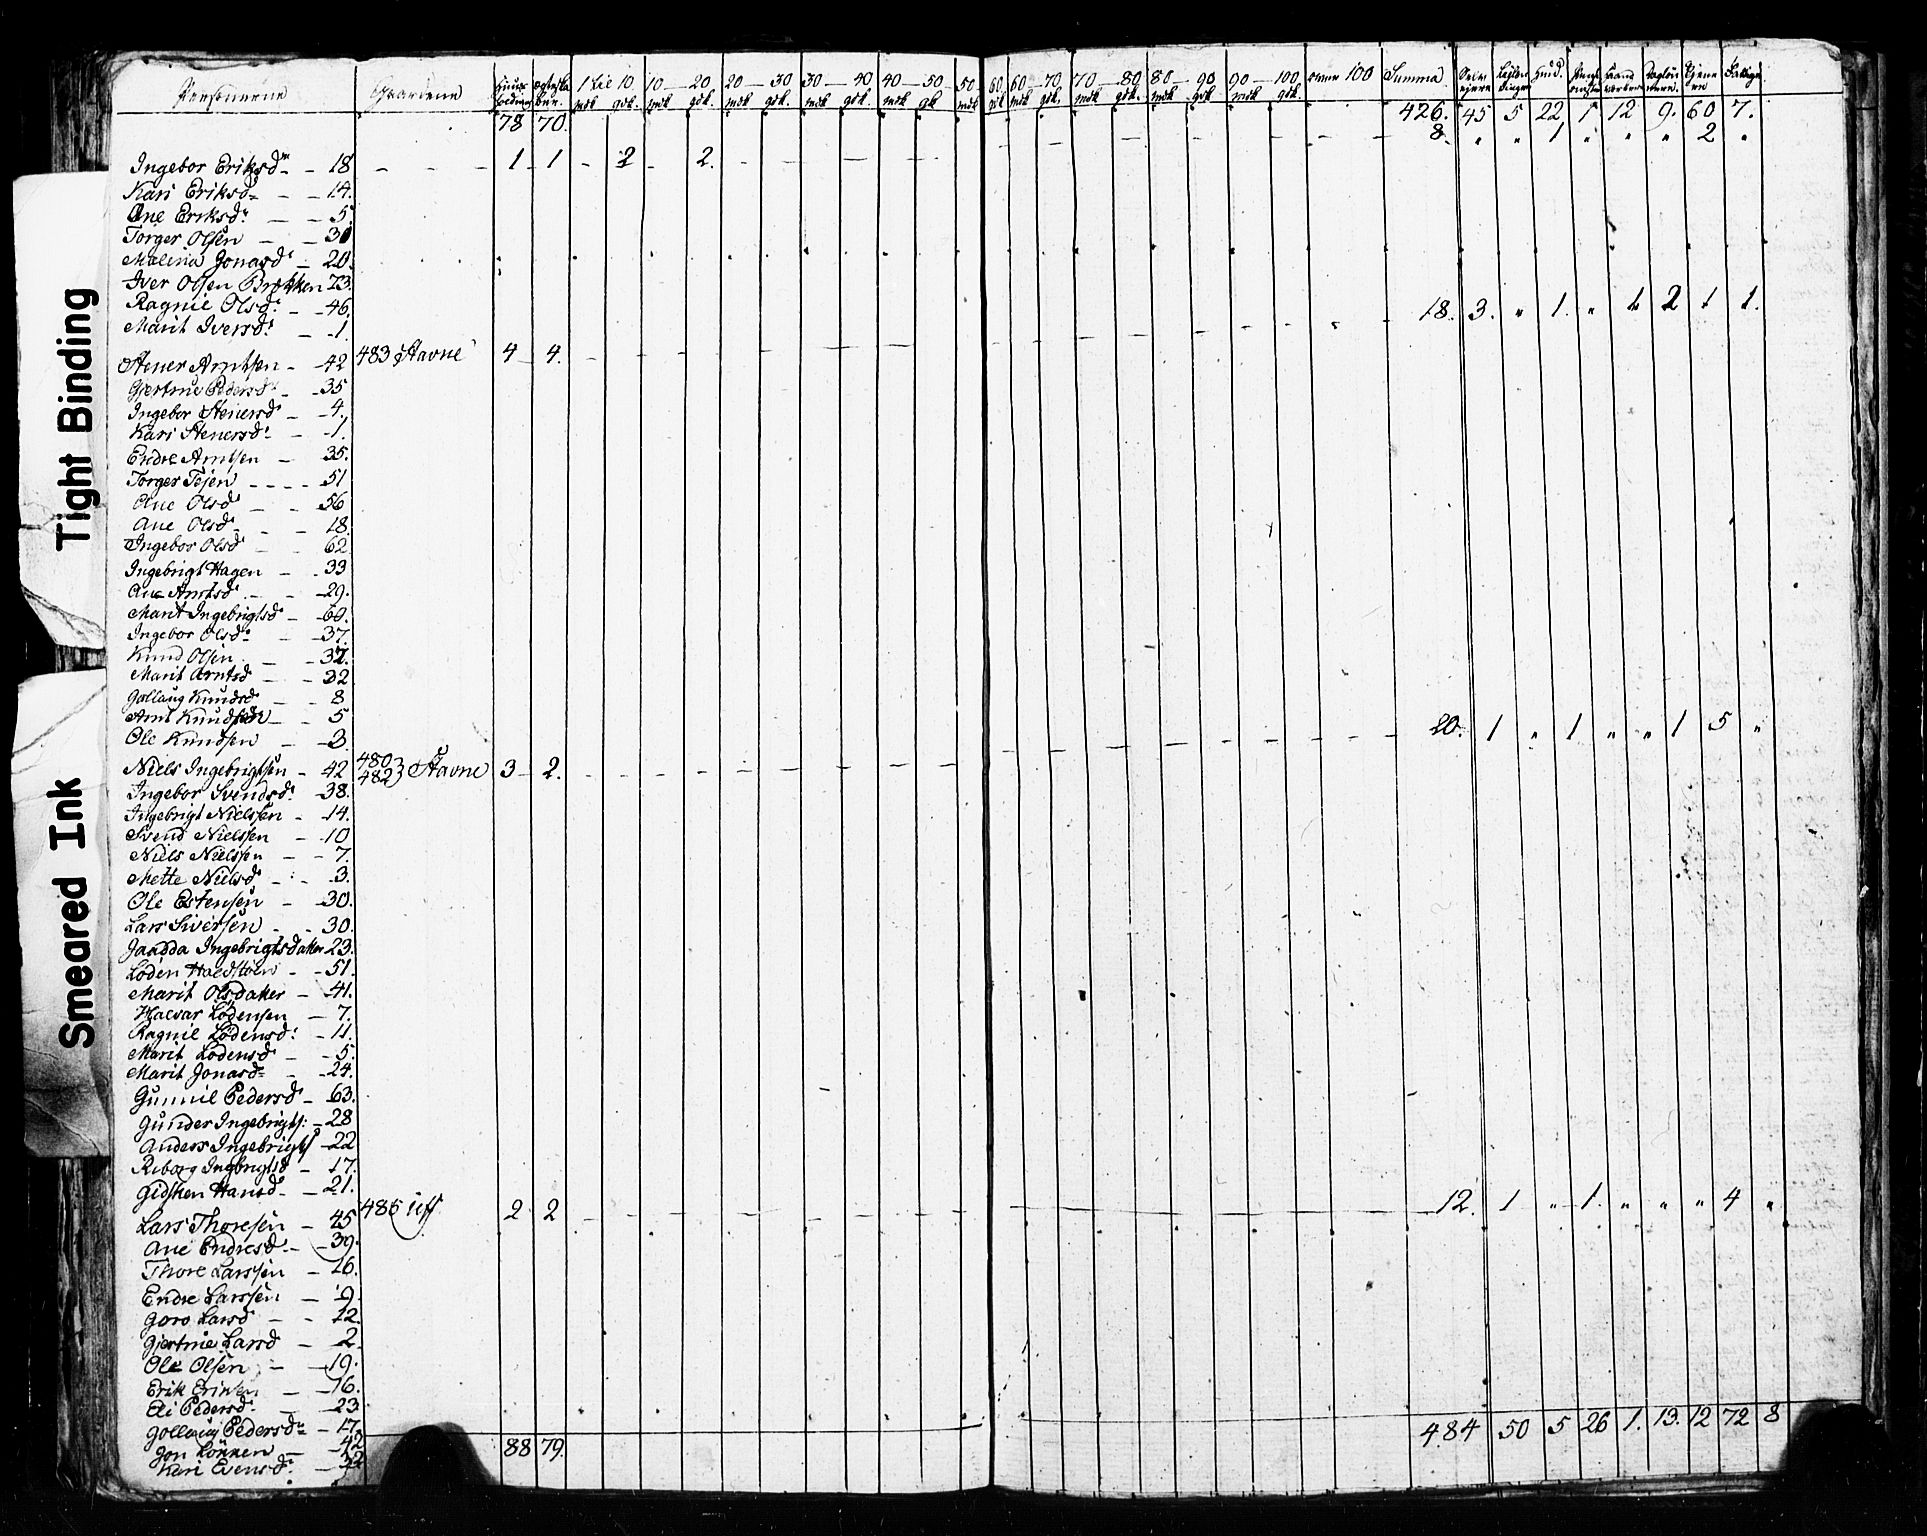 Tight Binding
Smeared Ink
Personerne Gaardene 1 til 10 10 — 20 20 — 30 30 — 40 40 — 50 50 60 60 — 70 70 — 80 80 — 90 90 — 100 over 100 Summa
mdk gdk. mdk gdk. mdk gdk. mdk gdk. mdk gk mdk gdk mdk gdk. mdk gdk. mdk gdk. mdk gdk.
78 70. 426. 45 5 22 1 12 9. 60 7.
8. " " 1 " " " 2 "
Ingebor Eriksdr - - 18 - - - 1 1 - 2 - 2.
Kari Eriksd - - 14.
Ane Eriksdr — — 5.
Torger Olsen — — 30
Malena Jonasd — 20.
Iver Olsen Brækken 73.
Ragnil Olsd: - -46. 18. 3. " 1. " 1 2 1 1.
Marit Iversd: - -1.
Stener Arntsen - -42 483 Stavne 4 4.
Gjertrue Pedersd -35
Ingebor Stenersd - -4.
Kari Stenersd: - -1.
Endre Arntsen - 35.
Torger Tejen - - - - 51
Ane Olsd - - 56
Ane Olsd - - 18.
Ingebor Olsd - - 62.
Ingebrigt Hagen - - 33
Ane Arntsd - - -29.
Marit Ingebrigtsd -60.
Ingebor Olsd: - -37.
Knud Olsen - -32.
Marit Arntsd - - 32
Gollaug Knudsd - - 8
Arnt Knudsen - - 5
Ole Knudsen - -3. 20. 1 " 1 " " 1 5 "
Niels Ingebrigtsen - 42 480 482 } Stavne 3 2.
Ingebor Svendsd: -38.
Ingebrigt Nielssen - -14.
Svend Nielssen - -10
Niels Nielssen - - 7.
Mette Nielsd - - - 3.
Ole Estensen - -30.
Lars Siversen - - 30.
Ingebrigtsdatter 23.
Loden - -51.
Marit Olsdatter - -41.
Halvar Lodensen — 7.
Ragnil Lodensd: - 11.
Marit Lodensd - -5.
Marit Jonasd - -24.
Gunnil Pedersd - 63.
Gunder Ingebrigts: -28
Anders Ingebrigts -22
Reborg Ingebrigtsd - 17.
Gidsken Hansd - -21. 12. 1 " 1. " " " 4 "
Lars Thoresen - 45 485 2 2
Ane Endresd: - -39.
Thore Larssen - 16.
Endre Larssen — 9.
Goro Larsd - - 12.
Gjertrue Larsd - 2.
Ole Olsen — -19.
Erik — -16.
Eli Pedersd: — -23
Gollaug Pedersdr - 17.
Jon — -42
Kari Evensd:
88 79. 484 50 5 26 1. 13. 12 72 8